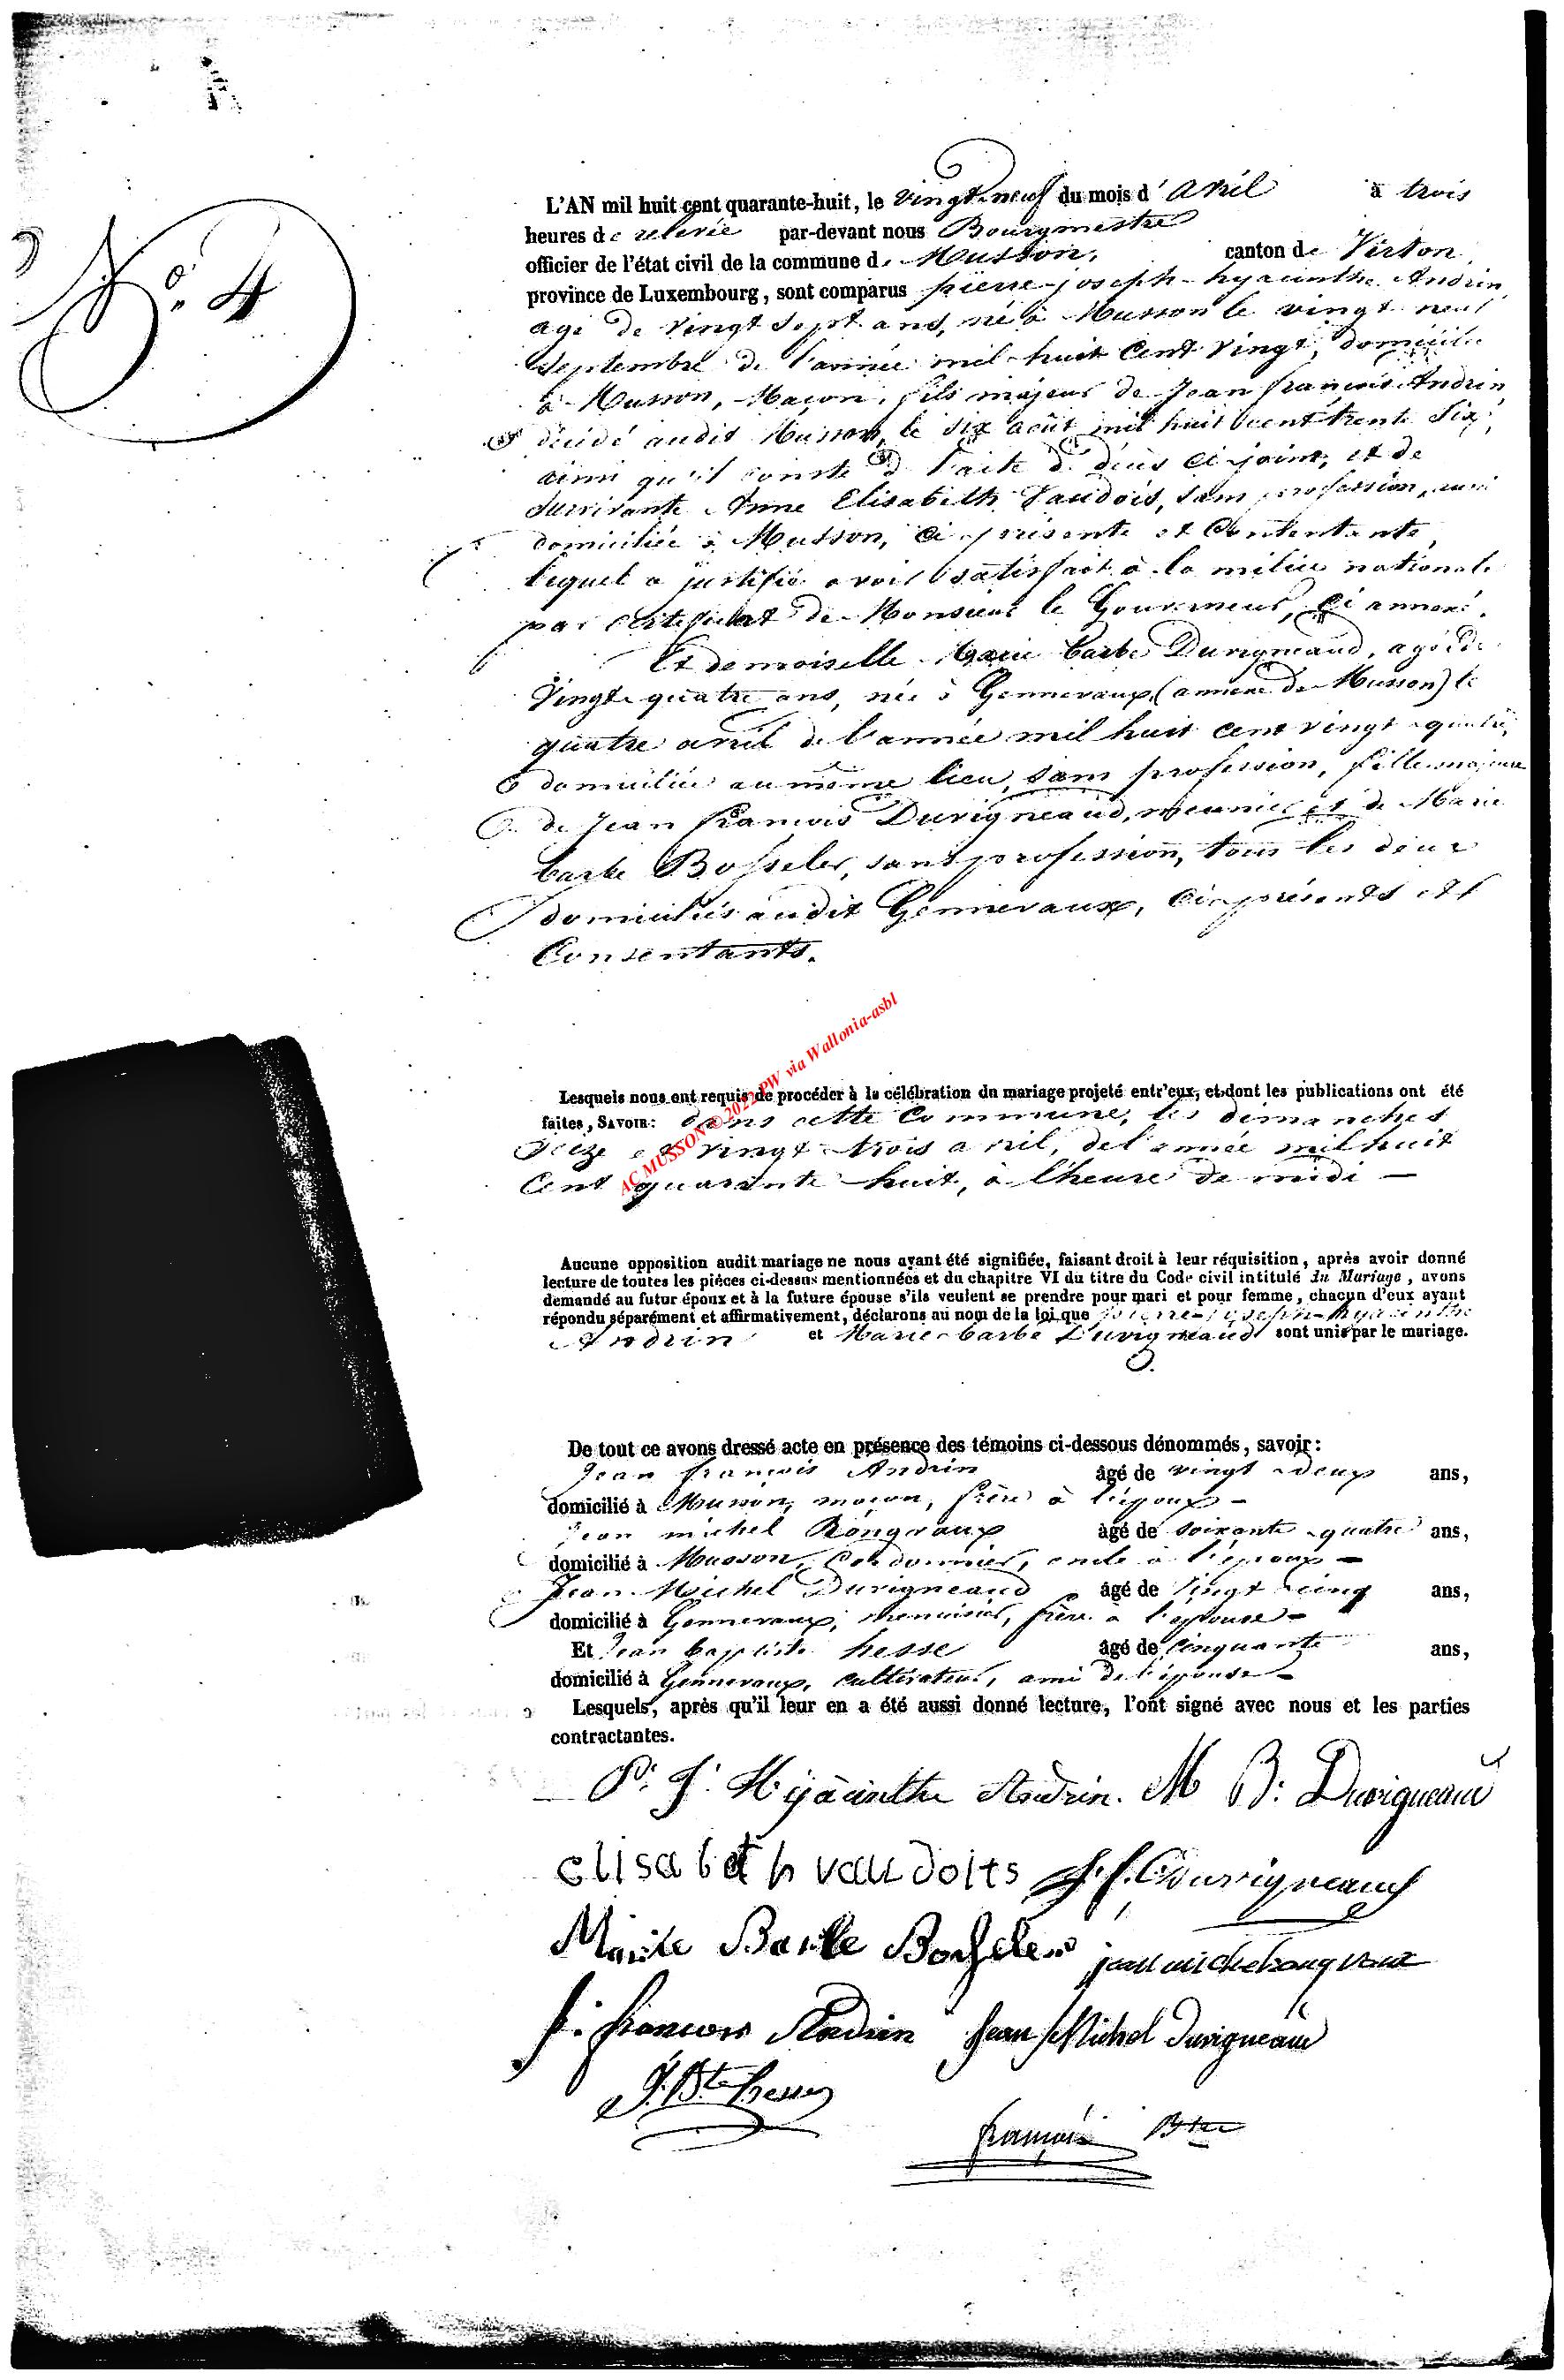 N.º 4
L'AN mil huit cent quarante-huit, le vingt-neuf du mois d'avril à trois
heures de relevée par-devant nous Bourgmestre
officier de l'état civil de la commune de Musson, canton de Virton,
province de Luxembourg, sont comparus pierre-joseph-hyacinthe Andrin,
agé de vingt sept ans, né à Musson le vingt neuf
septembre de l'année mil-huit cent vingt, domicilié
à Musson, Maçon, fils majeur de Jean françois Andrin,
décidé audit Musson, le six août mil huit cent trente Six,
ainsi qu'il conste d l'acte de décès ci-joint, et de
survivante Anne Elisabeth Vaudois, sans profession,
domiciliée à Musson, ci-présente et Contentante,
lequel a justifié avoir satisfait à la milice nationale
par certificat de Monsieur le Gouverneur, ci annexé.
Et demoiselle Marie barbe Duvigneaud, agée de
Vingt-quatre ans, née à Gennevaux, (annexe de Musson) le
quatre avril de l'année mil huit cent vingt-quatre,
domiciliée au même lieu, sans profession, fille majeure
de Jean françois Duvigneaud, meunier et de Marie
barbe Bosseler, sans profession, tous les deux
domiciliés audit Gennevaux, ci-présents et
Consentants.
Lesquels nous ont requis de procéder à la célébration du mariage projeté entr'eux, et dont les publications ont été
faites, SAVOIR: dans cette Commune, les dimanches
seize et vingt-trois avril, de l'année mil huit
Cent quarante-huit, à l'heure de midi —
AC MUSSON © 2022 PW via Wallonia-asbl
Aucune opposition audit mariage ne nous ayant été signifiée, faisant droit à leur réquisition, après avoir donné
lecture de toutes les pièces ci-dessus mentionnées et du chapitre VI du titre du Code civil intitulé du Mariage, avons
demandé au futur époux et à la future épouse s'ils veulent se prendre pour mari et pour femme, chacun d'eux ayant
répondu séparément et affirmativement, déclarons au nom de la loi que pierre-joseph-hyacinthe
Andrin et Marie-barbe Duvigneaud sont unis par le mariage.
De tout ce avons dressé acte en présence des témoins ci-dessous dénommés, savoir:
Jean françois Andrin âgé de vingt-deux ans,
domicilié à Musson, maçon, frère à l'époux —
Jean michel Rongvaux âgé de soixante-quatre ans,
domicilié à Musson, Cordonnier, oncle à l'époux —
Jean-Michel Duvigneaud âgé de Vingt-cinq ans,
domicilié à Gennevaux, menuisier, frère à l'épouse —
Et Jean baptiste hesse âgé de Cinquante ans,
domicilié à Gennevaux, cultivateur, ami de l'épouse —
Lesquels, après qu'il leur en a été aussi donné lecture, l'ont signé avec nous et les parties
contractantes.
P. J. Hyacinthe Andrin. M B: Duvigneaud
elisabeth vaudoits J. f. Duvigneaud
Marie Barbe Bosseler jean michel rongvaux
j. francois Andrin Jean Michel Duvigneaud
J. Bte hesse
françois